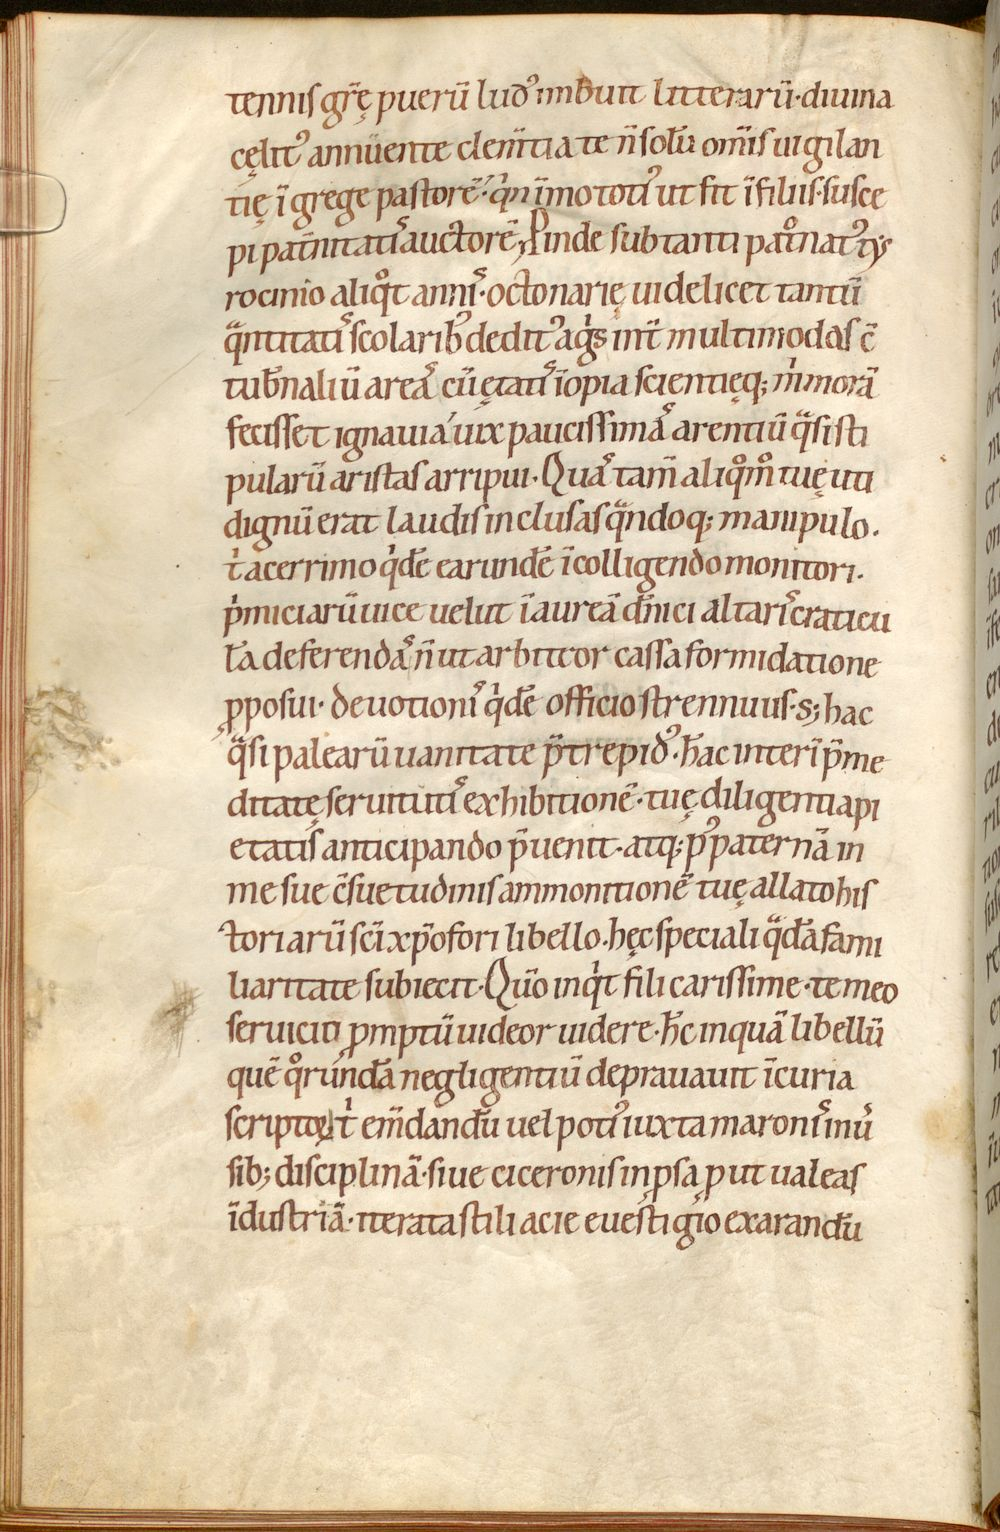 tennis gr̄ę puerū lud᷒ imbuit litterarū· diuina
cęlit᷒ annuente clem̄tia te n̄ solū om̄is uigilan
tię ī grege pastorē· qͥn īmo toti᷒ ut fit ī filiis· susce
pi pat̄nitatis auctorē; Pinde sub tanti pat͛onat᷒ ty
rocinio aliqͦt annis· octonarię uidelicet tantū
qͣntitatis scolarib᷒ dedit᷒ aqͥs int̄ multimodas c̄
tub̄naliū areas cū ętatis īopia scientięq; mͥnorā
fecisset ignauia uix paucissimas arentiū qͣsi sti
pularū aristas arripui· Quas tam̄ aliqͦm͂ tuę uti
dignū erat laudis inclusas qͣndoq; manipulo·
tͥ acerrimo qͥdē earundē ī colligendo monitori·
pͥmiciarū uice uelut ī aureā dn̄ici altaris craticu
lā deferendas n̄ ut arbitror cassa formidatione
ꝓposui· deuotionis qͥdē officio strennuus· s; hac
qͣsi palearū uanitate p̄trepid᷒· hāc interī p̄me
ditatę seruitutis exhibitionē· tuę diligentia pi
etatis anticipando p̄uenit· atq; p᷒ paternā in
me sue c̄suetudinis ammonitionē tuę allato his
toriarū sc̄i xp̄ofori libello· hęc speciali qͣdā fami
liaritate subiecit· Qūo inqͥt fili carissime· te meo
seruiciti ꝓmptū uideor uidere· hc̄ inquā libellū
quē qͦrundā negligentiū deprauauit īcuria
scriptoꝝ tͥ em̄dandū uel poti᷒ iuxta maronis inuͥ
sib; disciplinā· siue ciceronis in ꝑsa ꝓut ualeas
īdustriā· iterata stili acie euestigio exarandū